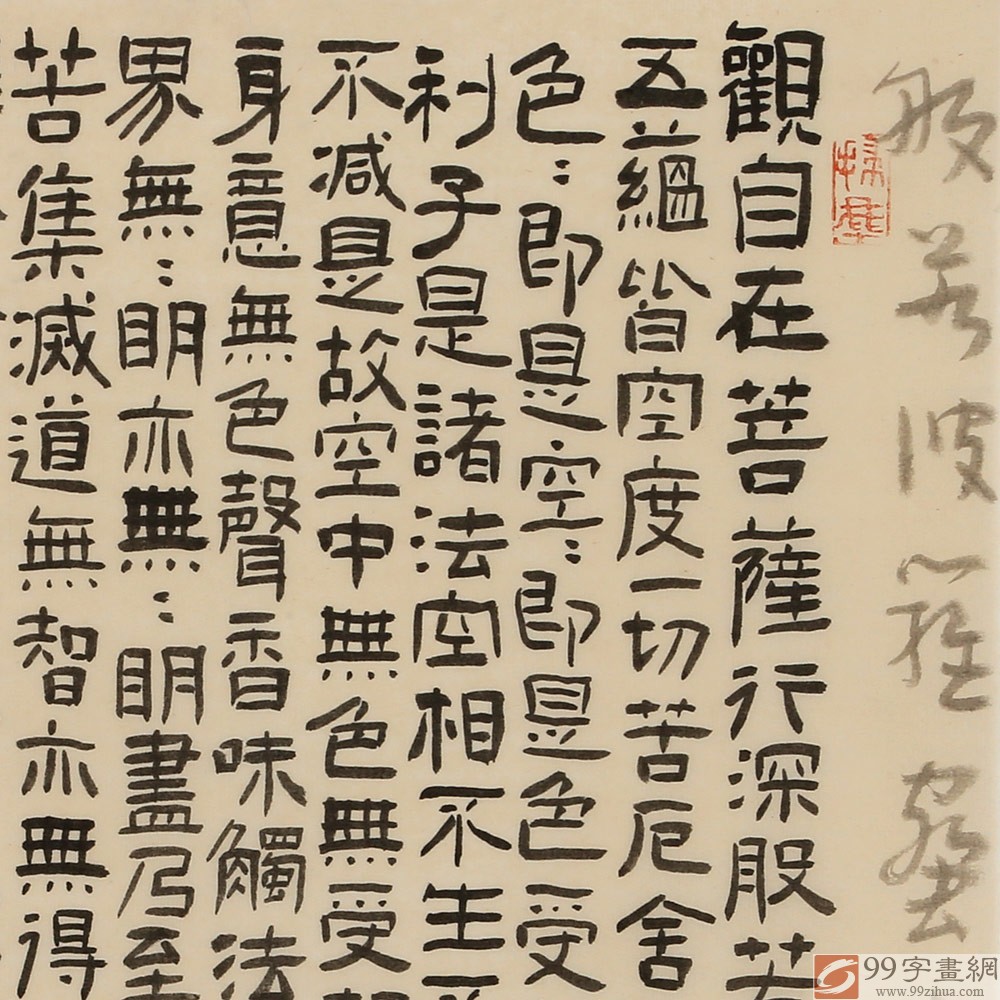 般若波羅蜜
觀自在菩薩行深般若
五蘊皆空度一切苦厄舍
色:即是空:即是色受
利子是諸法空相不生不
不减是故空中無色無受想
身意無色聲香味觸法
界無:明亦無:明盡乃至
苦集滅道無智亦無得
99字畫網
www.99zihua.com